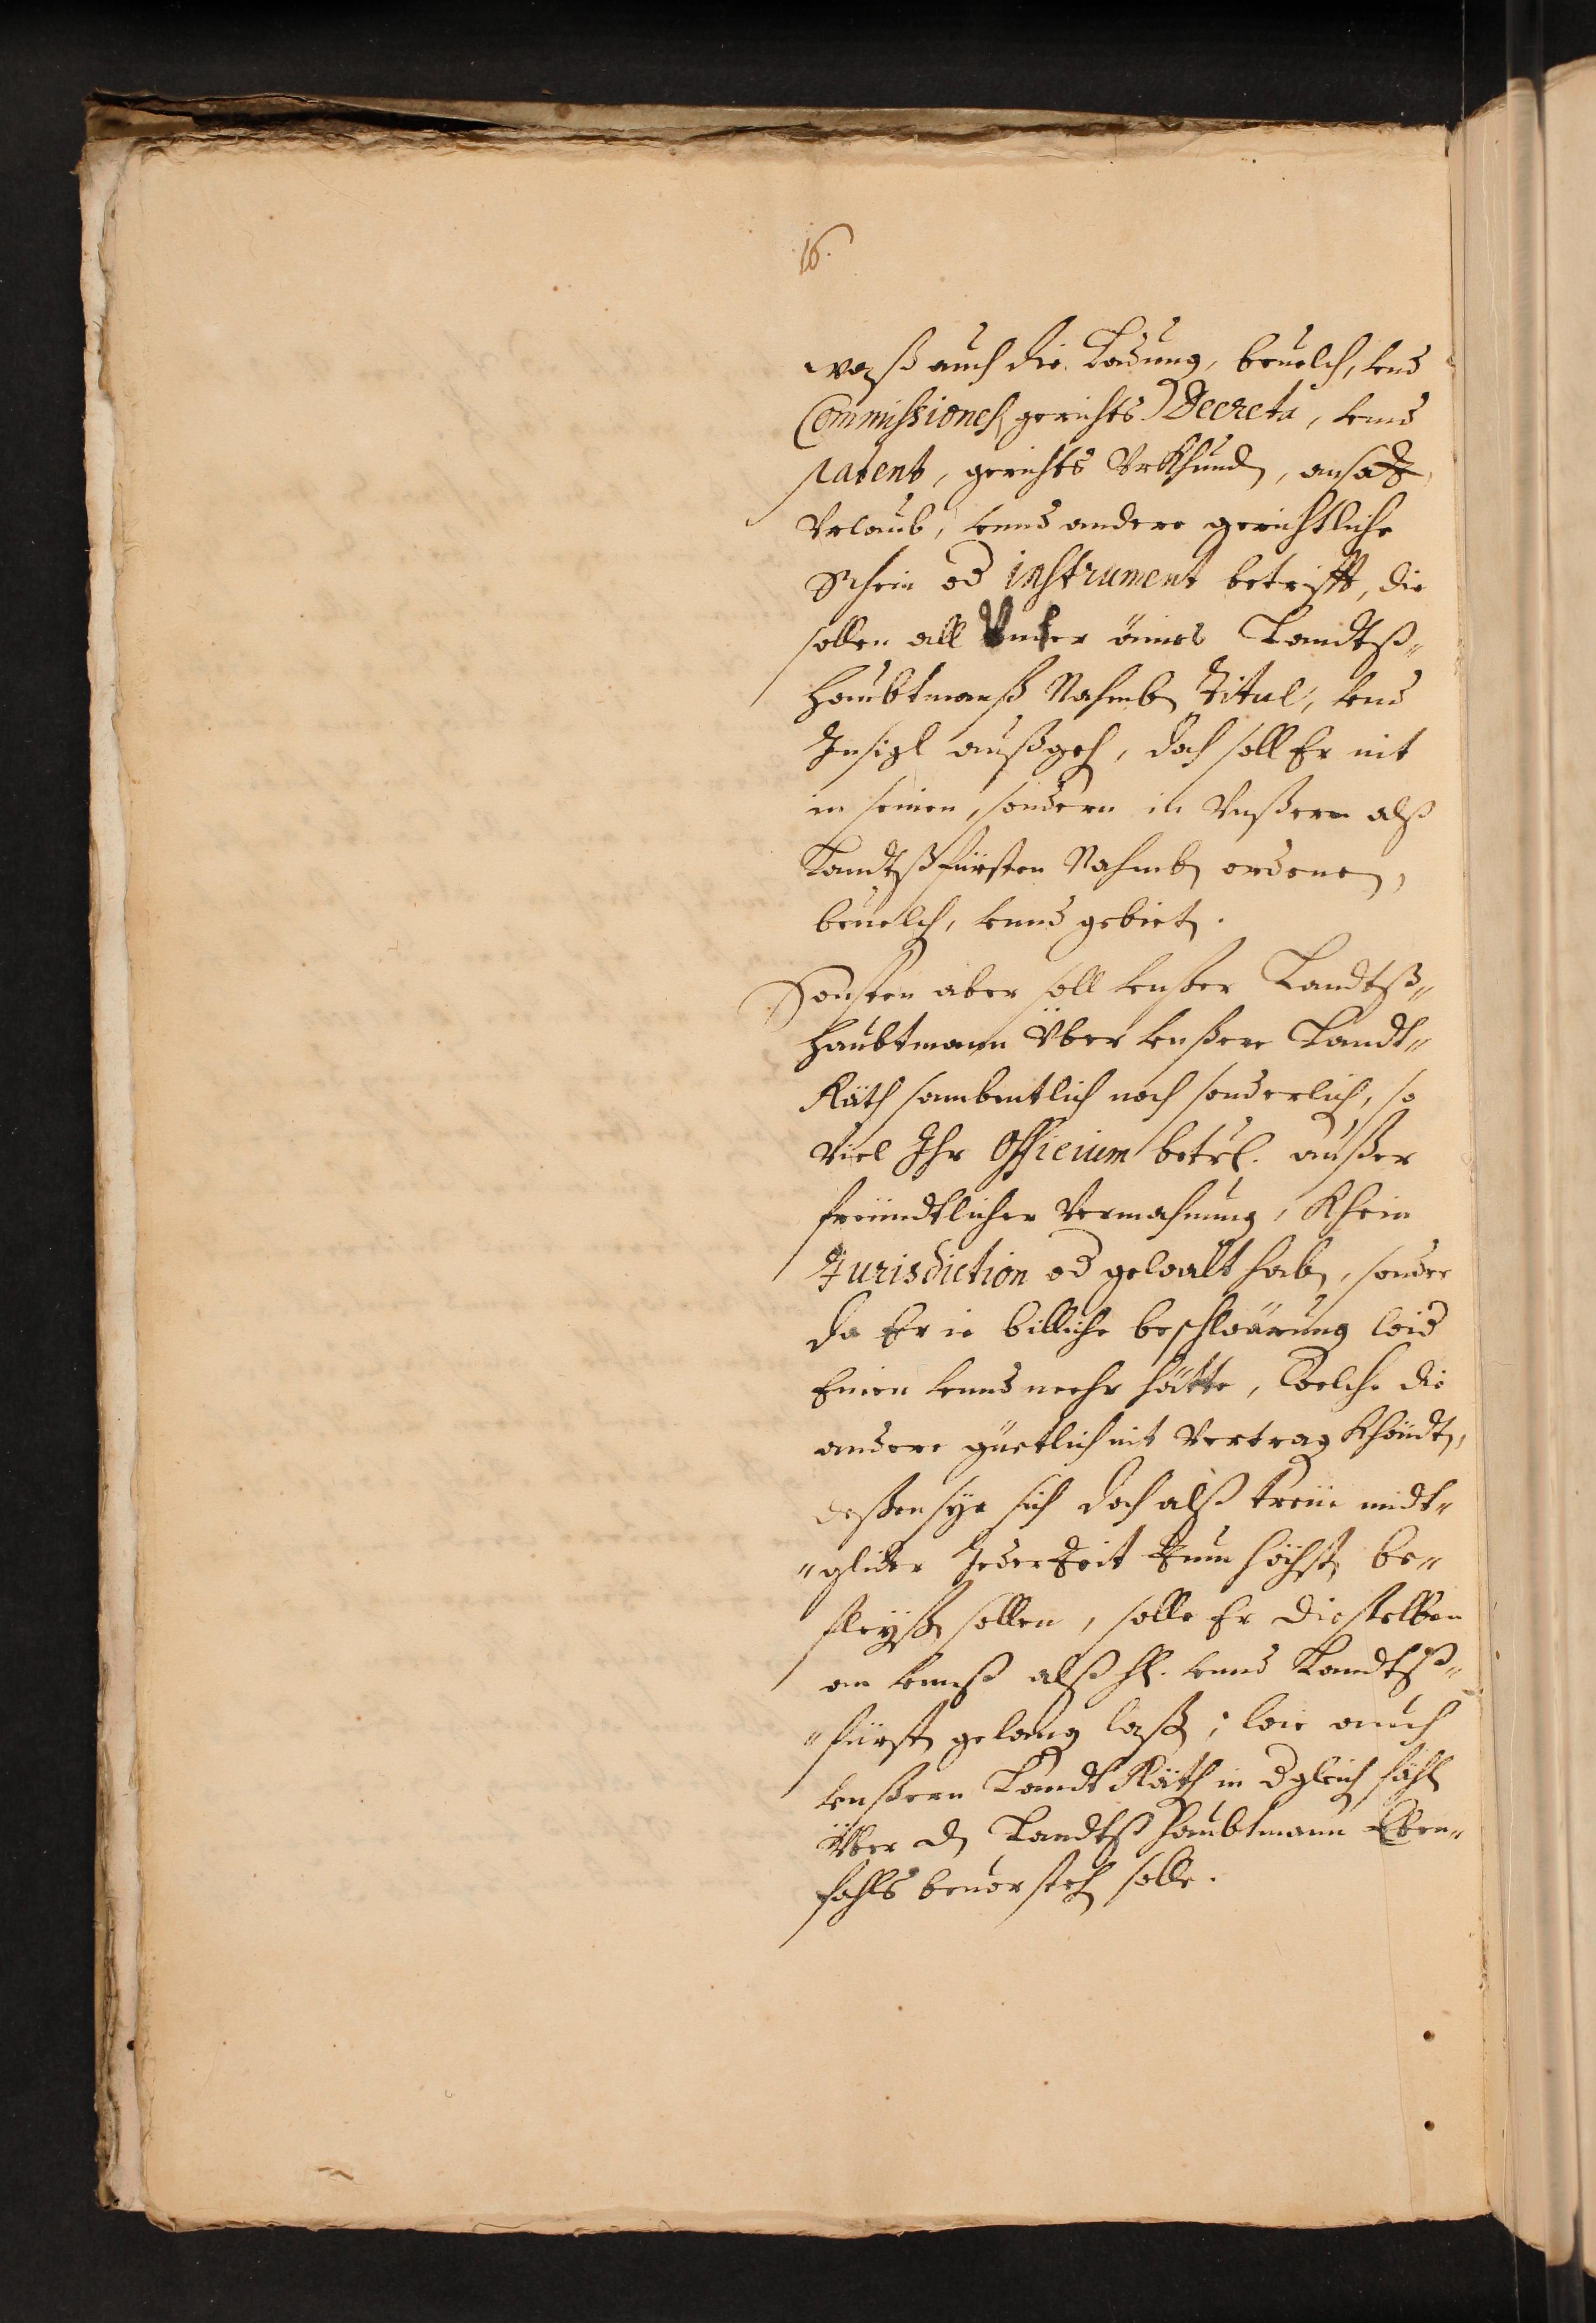 16.
Waß auch die Ladung, beuelch, vnd
Commissiones, gerichts Decreta, vnnd
patent, gerichts Vrkhund, ansatz,
Vrlaub, vnnd andere gerichtliche
Schein od instrument betrifft, die
sollen all Vnder eines Landtß„
haubtmanß Nahmb, Titul, vnd
Insigl außgeh, doch soll Er nit
in seinen, sondern in Vnßern alß
Landtßfürsten Nahmb ordenen,
beuelch, vnnd gebiet.
Sonsten aber soll vnßer Landtß„
haubtmann Über vnßere Landt„
Räth sambentlich noch sonderlich, so
Viel Ihr Officium betrl. außer
freündtlicher Vermahnung, Khein
Jurisdiction od gewalt hab, sonder
da Er ie billiche beschwärung wid
Einen vnnd mehr hätte, Welche die
andere güetlich nit Vertrag Khöndt,
deßen sye sich doch alß treüe midt„
„glider JederZeit Zum höchst be„
fleyß sollen, solle Er dieselben
an vnnß alß H. vnnd Landtß„
„fürst gelang laß; wie auch
vnßern Landt Räth in dgleich fähl
Über d Landtß haubtmann Eben„
fahls beuorsteh solle.